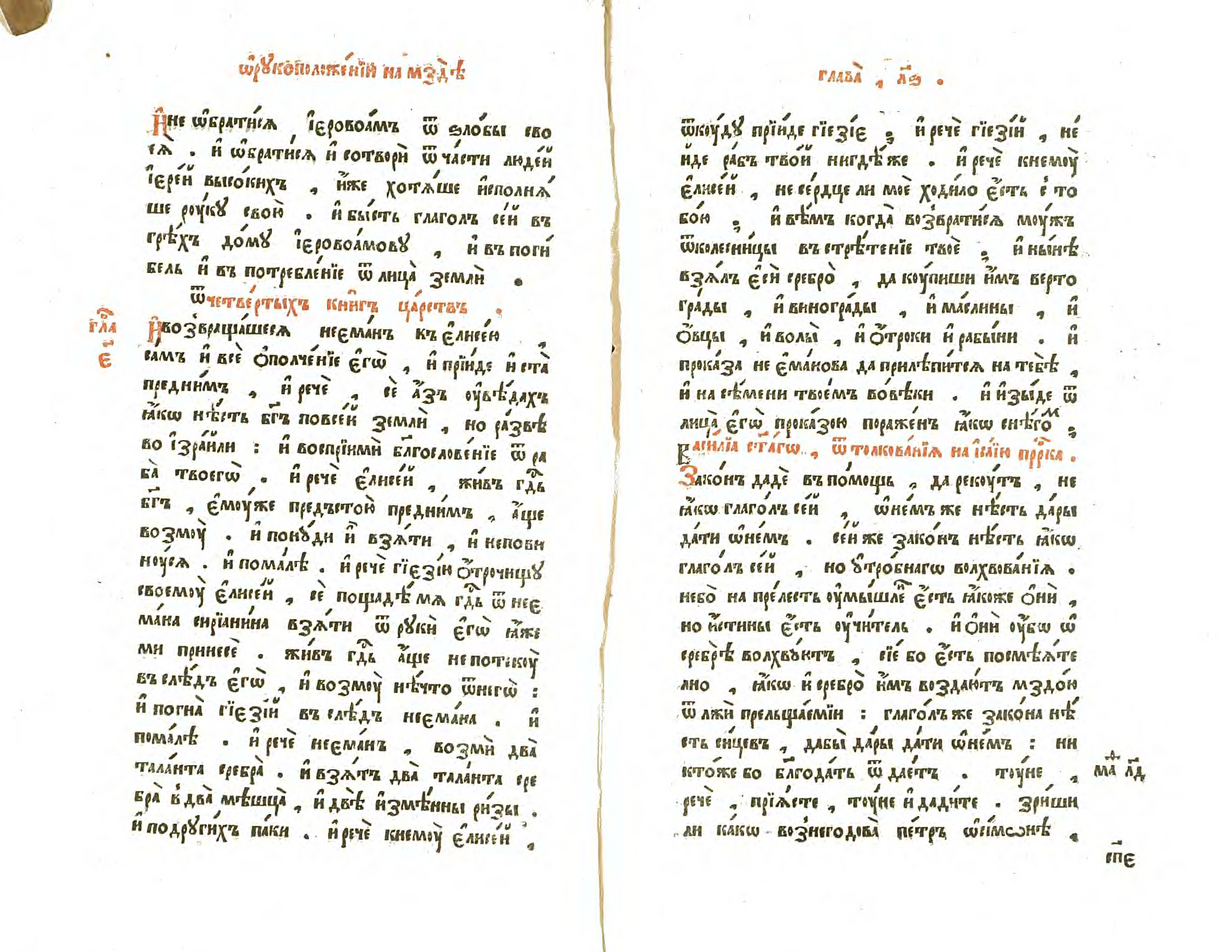 ѡ҆рꙋкоположе́нїи на мздѣ̀
И҆не ѡ҆брати́сѧ і҆еровоа́мъ ѿ ѕло́бы сво
еѧ̀ . и҆ ѡ҆брати́сѧ и҆ сотворѝ ѿ ча́сти люде́й
і҆ере́й высо́кихъ , и҆́же хотѧ́ше и҆сполнѧ́
ше рꙋ́кꙋ свою̀ . и҆ бы́сть глаго́лъ се́й въ
грѣ́хъ до́мꙋ і҆еровоа́мовꙋ , и҆ въ поги́
бель и҆ въ потребле́нїе ѿ лица̀ землѝ .
ѿ четве́ртыхъ кни́гъ ца́рствъ .
гл҃а
є҃
И҆возвраща́шесѧ неема́нъ къ є҆лисе́ю ,
са́мъ и҆ всѐ ѻ҆полче́нїе є҆гѡ̀ , и҆ прїи́де и҆ ста̀
пред̾ни́мъ , и҆ речѐ , сѐ а҆́зъ оу҆вѣ́дахъ
ꙗ҆́кѡ нѣ́сть бг҃ъ по все́й землѝ , но ра́звѣ
во і҆зра́или : и҆ воспрїимѝ бл҃гослове́нїе ѿ ра
ба̀ твоегѡ̀ . и҆ речѐ є҆лисе́й , жи́въ гд҇ь
бг҃ъ , є҆мꙋ́же предъстою̀ пред̾ни́мъ , а҆́ще
возмꙋ̀ . и҆ понꙋ́ди и҆̀ взѧ́ти , и҆ непови
нꙋ́сѧ . и҆ пома́лѣ . и҆ речѐ гїезі́ю ѻ҆трочищꙋ
своемꙋ̀ є҆лисе́й , сѐ пощадѣ́ мѧ гд҇ь ѿ нее
ма́на сирїа́нина взѧ́ти ѿ рꙋкѝ є҆гѡ̀ ꙗ҆̀же
ми принесѐ . жи́въ гд҇ь а҆́ще не потекꙋ̀
въ слѣ́дъ є҆гѡ̀ , и҆ возмꙋ̀ нѣ́что ѿ негѡ̀ :
и҆ погна̀ гїезі́й въ слѣ́дъ неема́на . и҆
пома́лѣ . и҆ речѐ неема́нъ , возмѝ два̀
тала́нта сребра̀ . и҆ взѧ́тъ два̀ тала́нта сре
бра̀ в̾ два̀ мѣшца̀ , и҆ двѣ̀ и҆змѣ́нны ри́зы .
и҆ подрꙋги́хъ па́ки . и҆ речѐ к̾немꙋ̀ є҆лисе́й ,
глава̀ , л҃ѕ .
ѿкꙋ́дꙋ прїи́де гїезі́е ; и҆ речѐ гїезі́й , не́
и҆де ра́бъ тво́й нигдѣ́же . и҆ речѐ к̾немꙋ̀
є҆лисе́й , не се́рдце ли моѐ ходи́ло є҆́сть с̾ то
бо́ю ; и҆ вѣ́мъ когда̀ возврати́сѧ мꙋ́жъ
ѿ колесни́цы въ стрѣ́тенїе твоѐ ; и҆ ны́нѣ
взѧ́лъ є҆сѝ сребро̀ , да кꙋ́пиши и҆́мъ верто
гра́ды , и҆ виногра́ды , и҆ ма́слины , и҆
ѻ҆́вцы , и҆ волы̀ , и҆ ѻ҆́троки и҆ рабы́ни . и҆
прока́за не є҆ма́нова да прилѣпи́тсѧ на тебѣ̀ ,
и҆ на сѣ́мени твое́мъ во вѣ́ки . и҆ и҆зы́де ѿ
лица̀ є҆гѡ̀ прока́зою пораже́нъ ꙗ҆́кѡ снѣ́гоⷨ ;
Васи́лїа ст҃а́гѡ , ѿ толкова́нїѧ на і҆са́їю прⷪ҇ро́ка .
Зако́нъ дадѐ въ по́мощь , да рекꙋ́тъ , не
ꙗ҆́кѡ глаго́лъ се́й , ѡ҆не́мъ же нѣ́сть да́ры
да́ти ѡ҆не́мъ . се́й же зако́нъ нѣ́сть ꙗ҆́кѡ
глаго́лъ се́й , но ᲂу҆тро́бнагѡ волхвова́нїѧ .
небо̀ на пре́лесть ᲂу҆мы́шлеⷩ҇ є҆́сть ꙗ҆́коже ѻ҆нѝ ,
но и҆́стины є҆́сть ᲂу҆чи́тель . и҆ ѻ҆нѝ ᲂу҆́бѡ ѡ҆
сребрѣ̀ волхвꙋ́ютъ , сїе́ бо є҆́сть посмѣѧ́те
лно , ꙗ҆́кѡ и҆ сребро̀ и҆́мъ воздаю́тъ мздо́ю
ѿ лжѝ прельща́емїи : глаго́лъ же зако́на нѣ́
сть си́цевъ , дабы̀ да́ры да́ти ѡ҆не́мъ : ни
кто́же бо бл҃года́ть ѿдае́тъ . тꙋ́не ,
мⷶ҇ѳ л҃д
речѐ , прїѧ́сте , тꙋ́не и҆ дади́те . зри́ши
ли ка́кѡ вознегодова̀ пе́тръ ѡ҆си́мѡнѣ ,
сп҃є